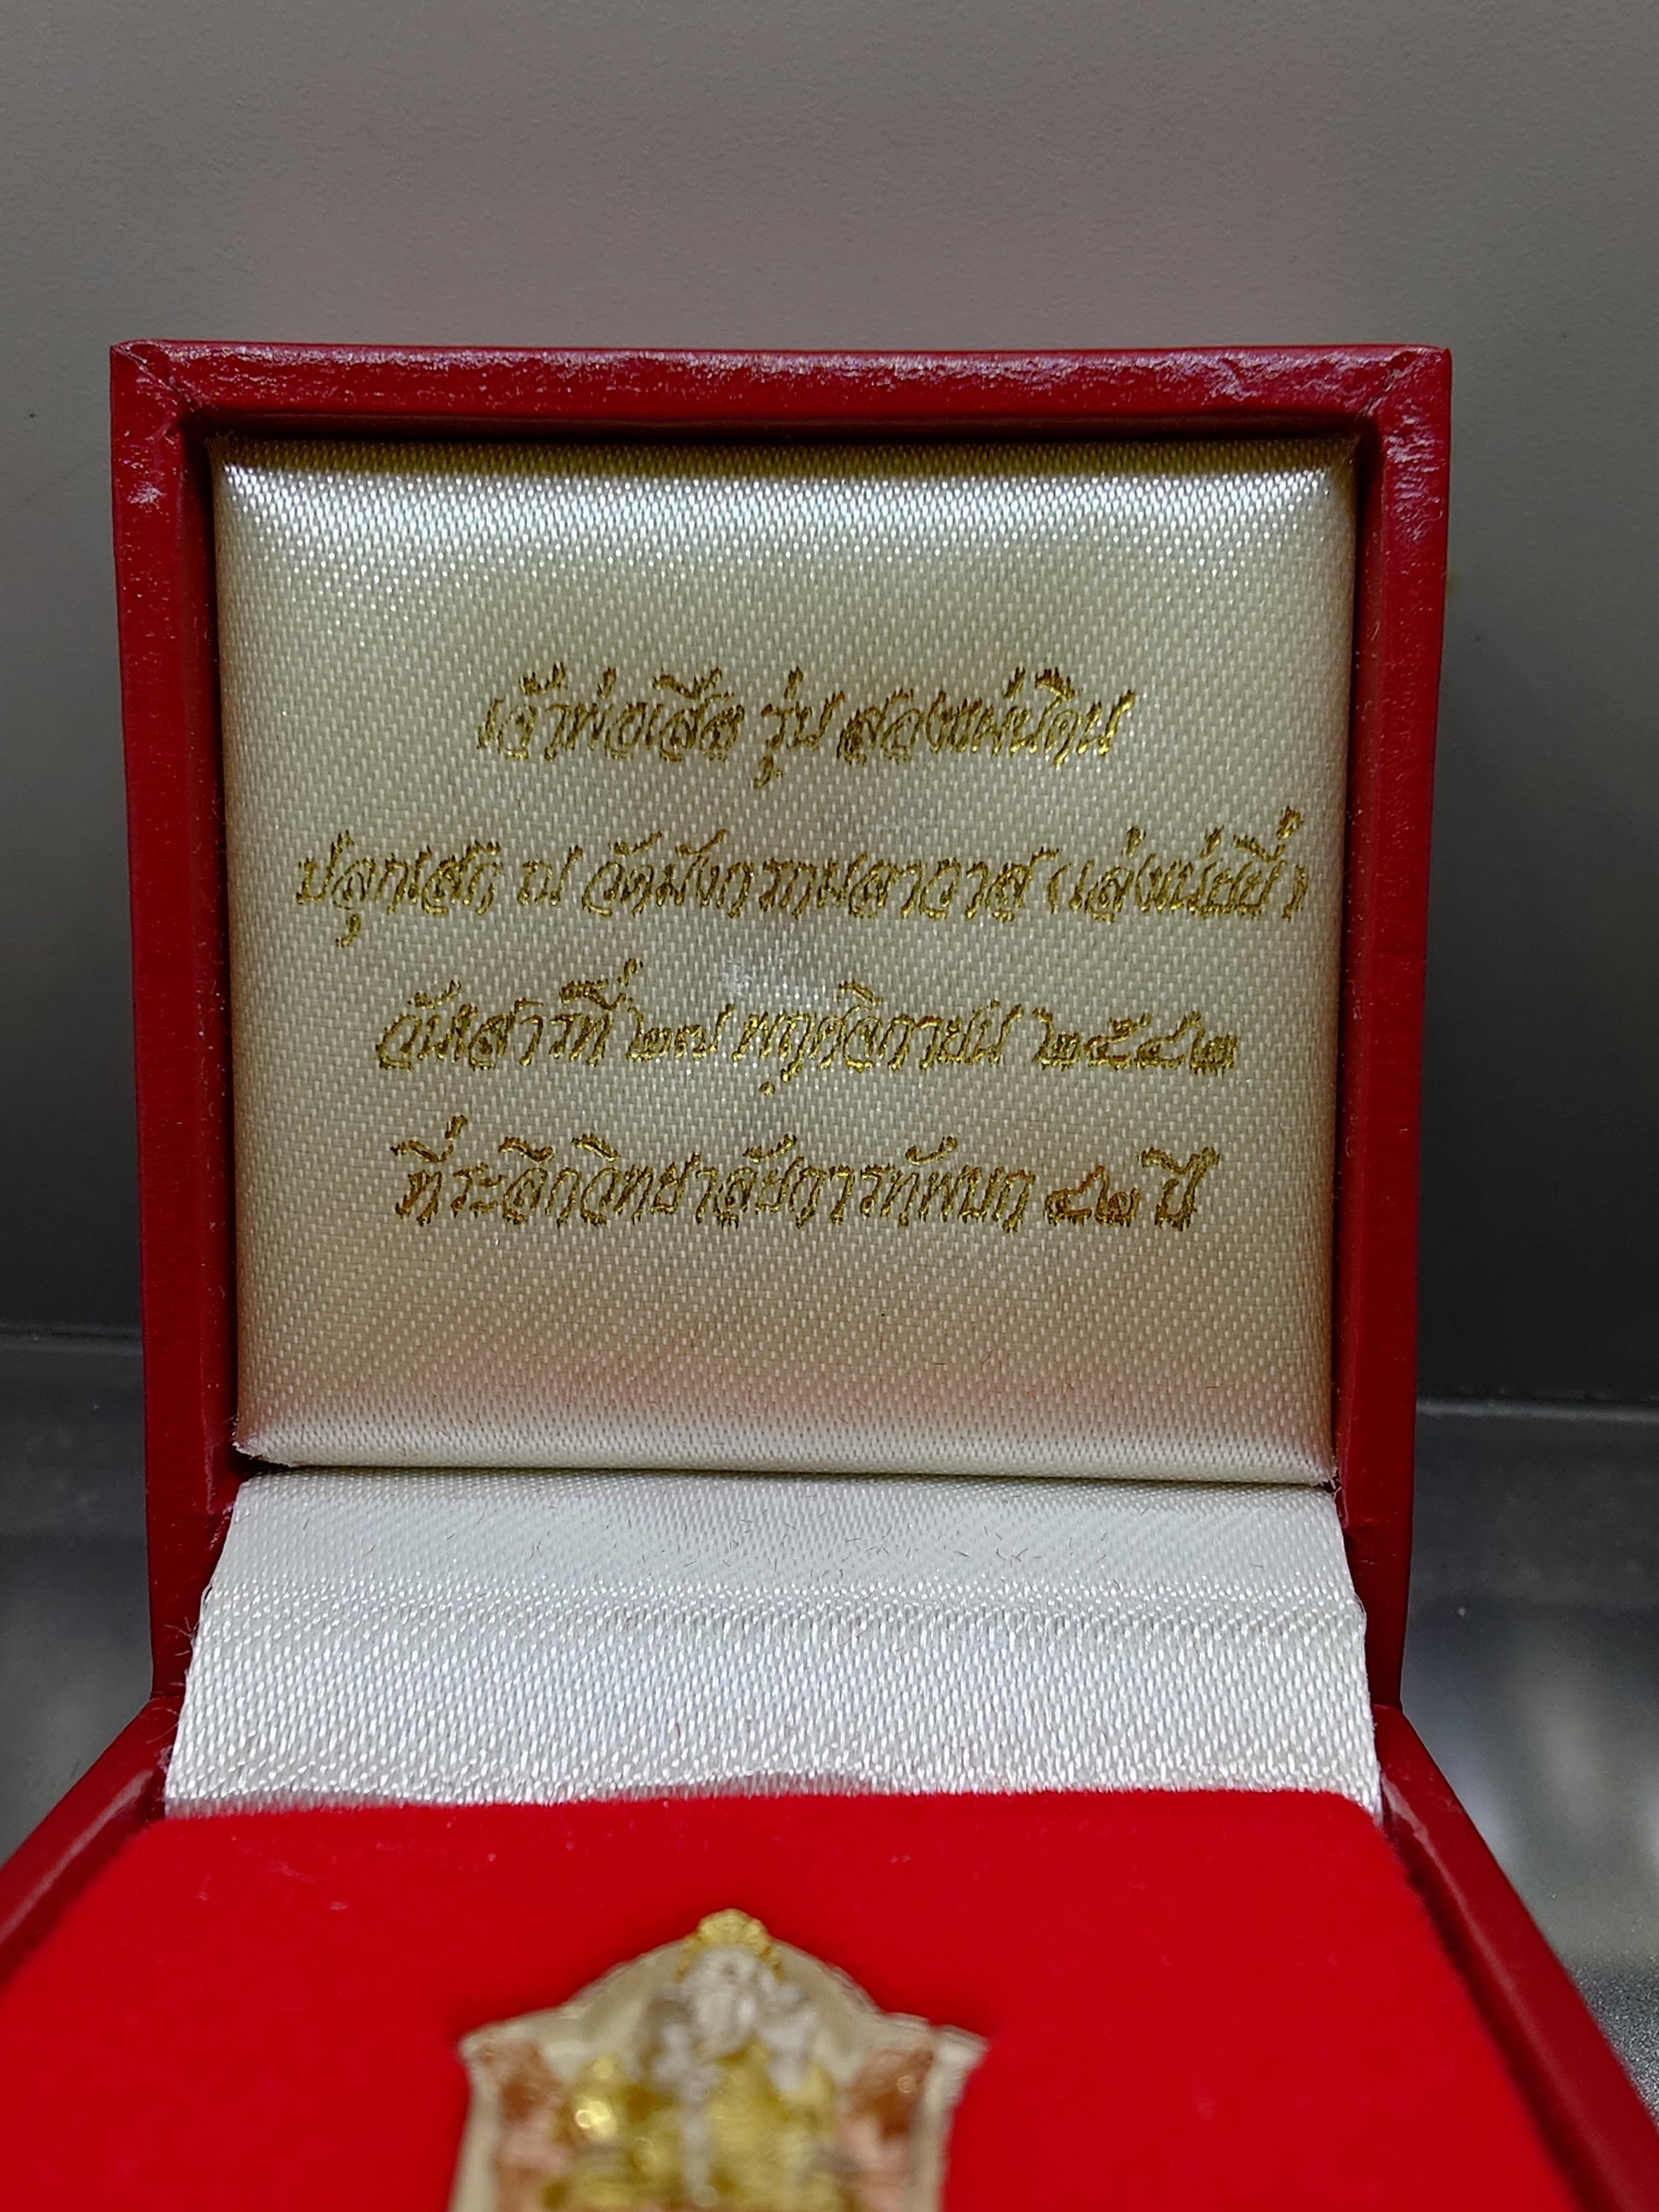 เจ้าพ่อเสือ รุ่น สองแผ่นดิน
ปลุกเสก ณ วัดมังกรกมลาวาส (เล่งเน่ยยี่)
วันเสาร์ที่ ๒๗ พฤศจิกายน ๒๕๔๒
ที่ระลึกวิทยาลัยการทัพบก ๔๒ ปี